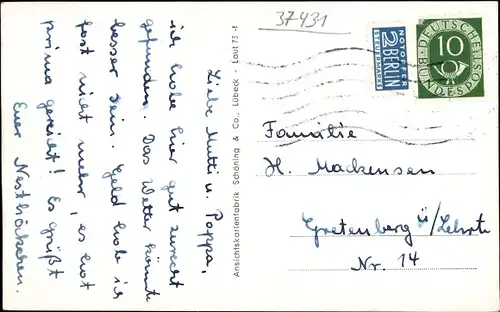 Liebe Mutti u. Poppa,
ich habe hier gut zurecht
gefunden. Das Wetter könnte
besser sein. Geld hab ich
fast nicht mehr, es hat
prima gereicht! Es grüßt
Euer Nesthäckchen.
Ansichtskartenfabrik Schöning & Co., Lübeck - Laut 73 -f
37431
NOTOPFER
2 BERLIN
STEUERMARKE
DEUTSCHE
BUNDESPOST
10
Familie
H. Mackensen
Gretenberg ü/Lehrte
Nr. 14